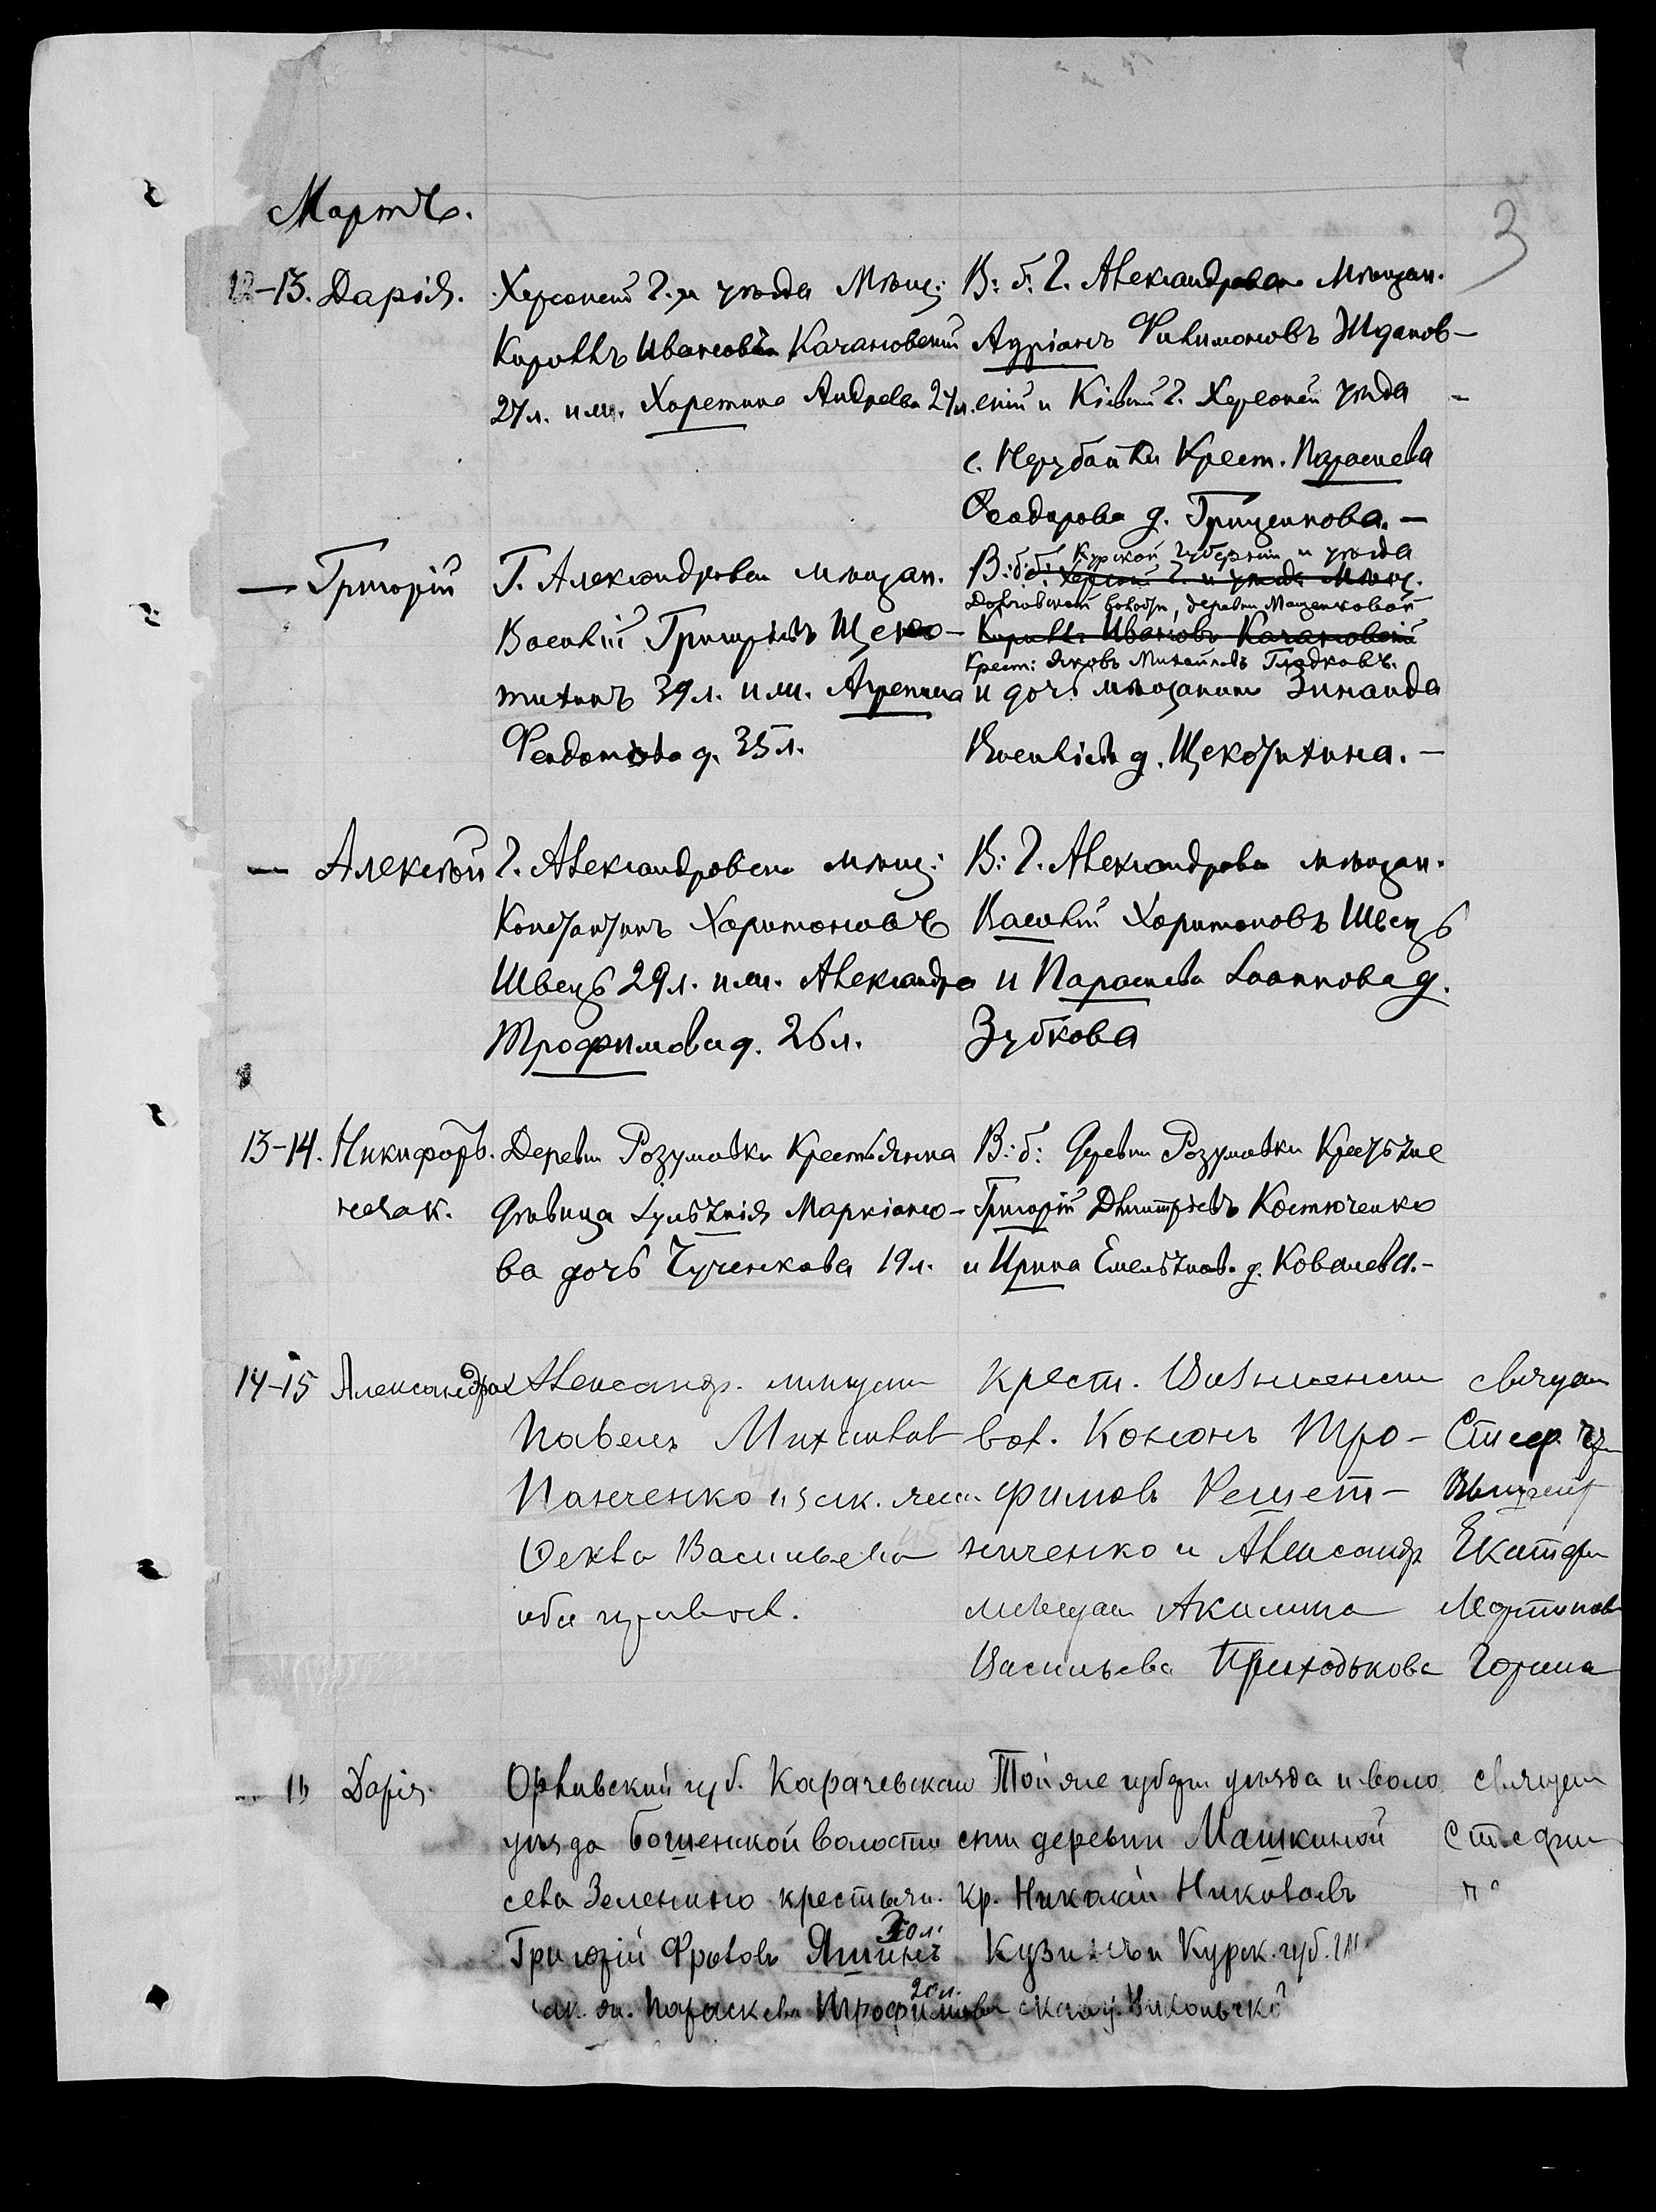 3
Мартъ.
12-13. Дарія.
Херсонск Г. и уѣзда Мѣщ:
Кириллъ Ивановъ Качановскій
27 л. и ж. Харитина Андреева 24 л.
В: б: Г. Александровска Мѣщан.
Адріанъ Филимоновъ Ждановскій и Кіевск Г. Херсонск уѣзда
с. Крест. Параскева
Феодорова д. Грищенкова. —
— Григорій
Г. Александровска мѣщан.
Василій Григорьевъ Щеко-
тихинъ 39 л. и ж. Агрепина
Феодотова д. 35 л.
Курской Губерніи и уѣзда
В: б: б: Херсонск Г. и уѣзда Мѣщ.
волости, деревни Мащенковой
Кириллъ Ивановъ Качановскій
Крест: Яковъ Михайловъ Гладковъ.
и дочь мѣщанина Зинаида
Васильева д. Щекотихина. —
— Алексѣй
Г. Александровска мѣщ:
Константинъ Харитоновъ
Швецъ 29 л. и ж. Александра
Трофимова д. 26 л.
В: Г. Александровска мѣщан.
Василій Харитоновъ Швецъ
и Параскева Іоаннова д.
Зубкова
13-14. Никифоръ.
незак.
Деревни Розумовки Крестьянка
дѣвица Іуліанія Маркіано-
ва дочь Чученкова 19 л.
В: б: деревни Розумовки Крестьяне
Григорій Дмитріевъ Костюченко
и Ирина Емельянов. д. Ковалева. -
14-15 Александра
Александр. мѣщан
Павелъ Михайлов
Панченко и зак. жена
Фекла Васильева
оба правосл.
Крест. Вознесенск
вол. Кононъ Тро-
фимовъ Решет-
ниченко и Александр
мѣщан Акилина
Васильева Приходькова
священ
Стефан

Екатери
Мартинов
Горина
— 15 Дарія.
Орловской губ. Карачевскаго
уѣзда бошенской волости
села Зеленино крестьян.
30 л.
Григорій Фроловъ Яшинъ
20 л.
зак. ж. Параскева Трофимова
Той же губерн уѣзда и воло
сти деревни Машкиной
кр. Николай Николаевъ
Кузинъ и Курск. губ.
священ
Стефан